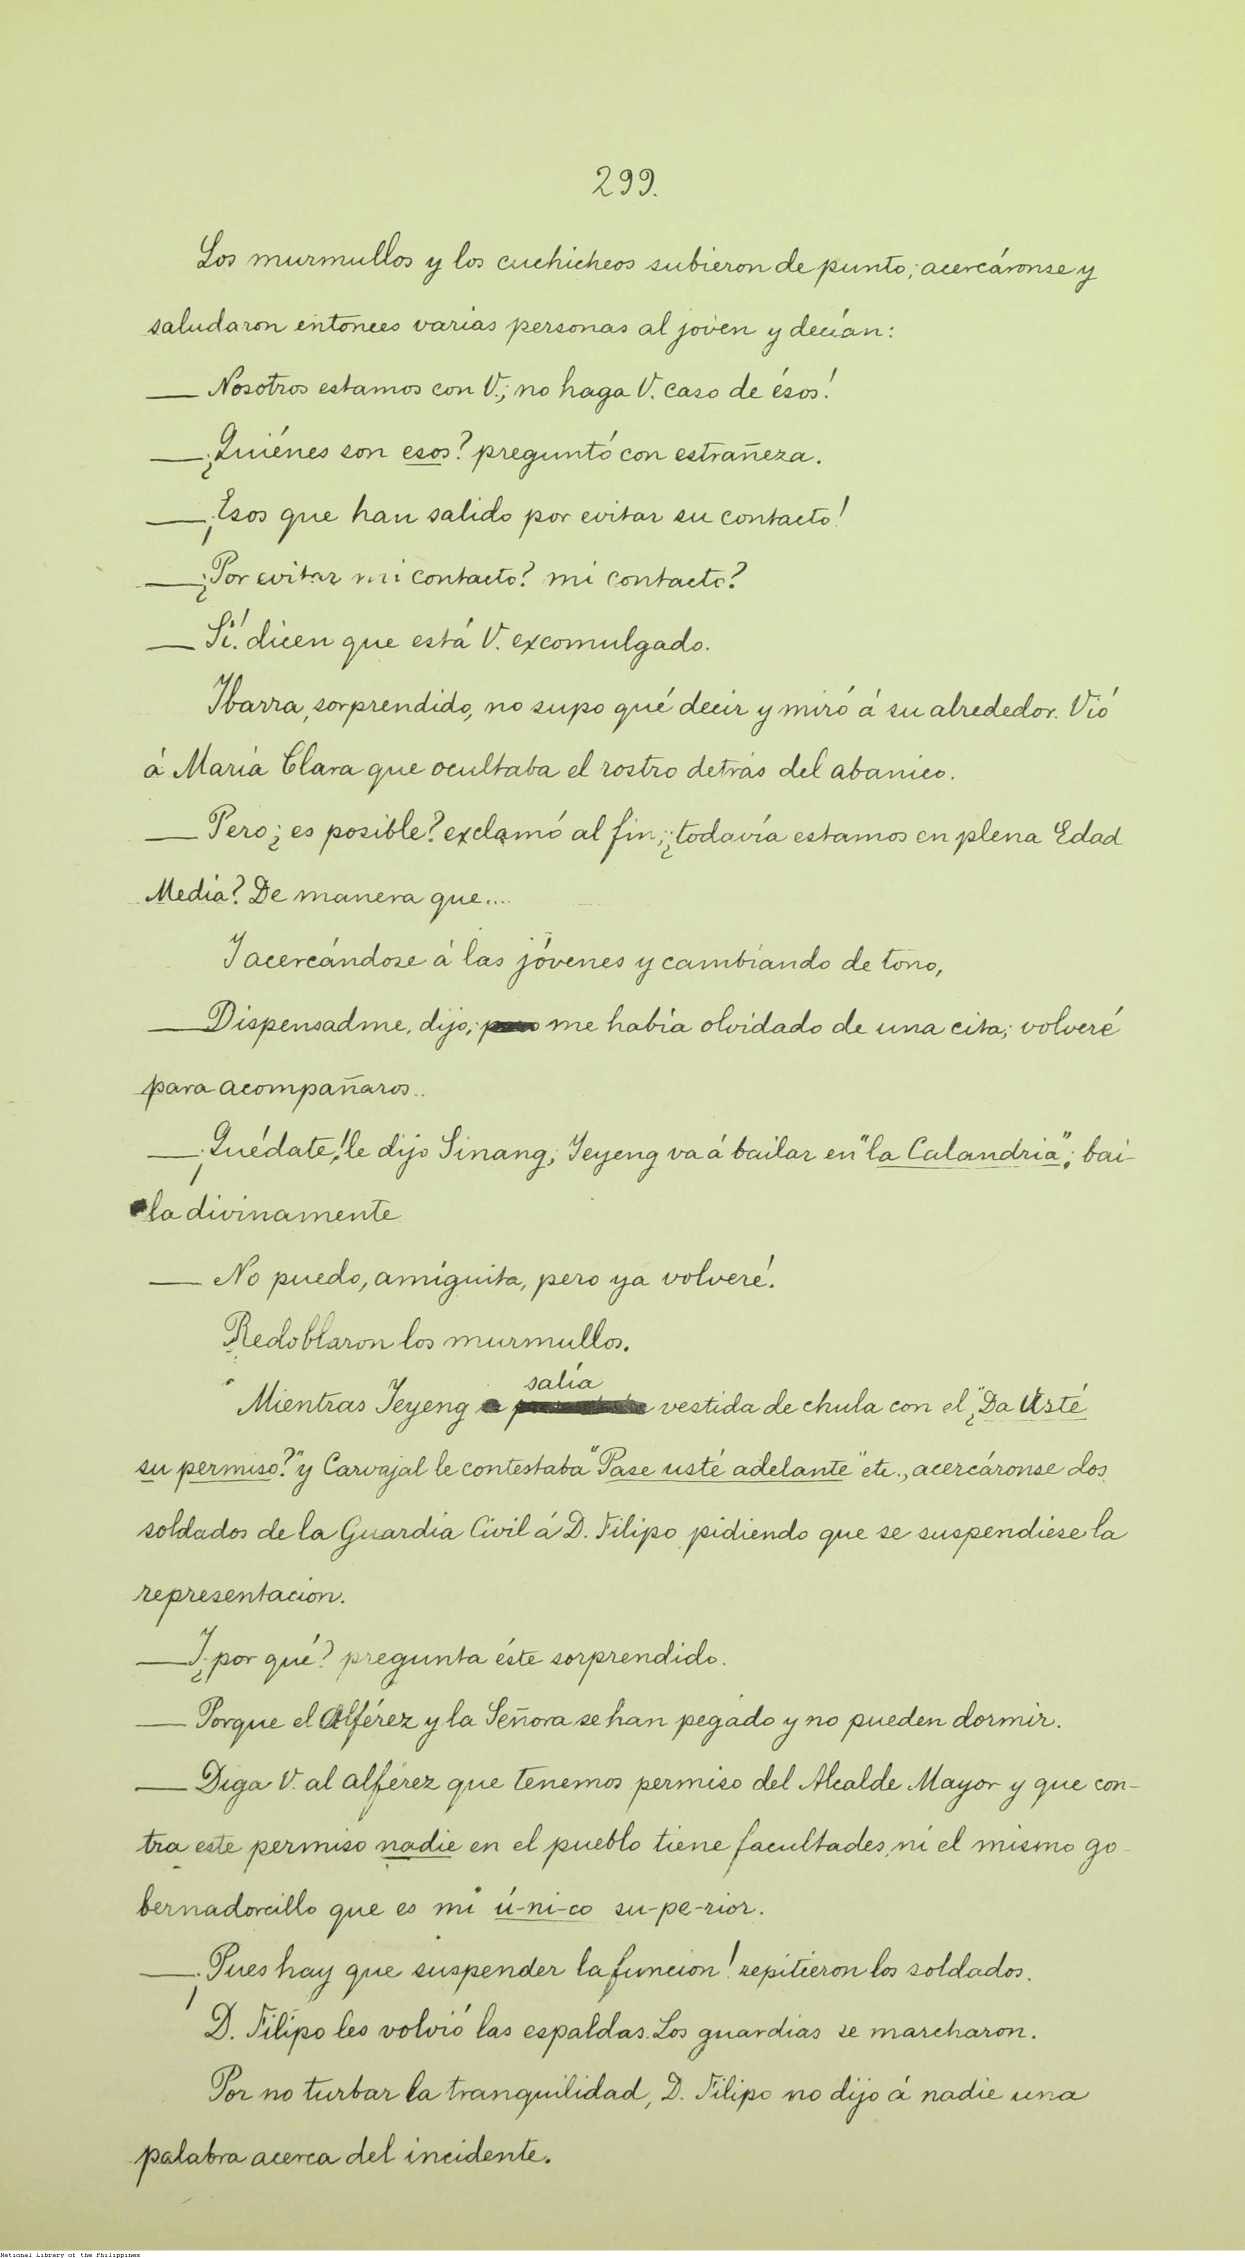 299.
Los murmullos y los cuchicheos subieron de punto; acercáronse y
saludaron entonces varias personas al joven y decían:
— Nosotros estamos con V.; no haga V. caso de ésos!
— ¿Quiénes son esos? preguntó con estrañeza.
— ¡Esos que han salido por evitar su contacto!
— ¿Por evitar mi contacto? mi contacto?
— Sí! dicen que está V. excomulgado.
Ibarra, sorprendido, no supo qué decir y miró á su alrededor. Vió
á María Clara que ocultaba el rostro detrás del abanico.
— Pero ¿es posible? exclamó al fin; ¿todavía estamos en plena Edad
Media? De manera que....
Y acercándose á las jóvenes y cambiando de tono,
— Dispensadme, dijo; me había olvidado de una cita; volveré
para acompañaros..
— ¡Quédate! le dijo Sinang; Yeyeng va á bailar en "la Calandria"; bai-
la divinamente
— No puedo, amiguita, pero ya volveré.
Redoblaron los murmullos.
salía
Mientras Yeyeng vestida de chula con el "¿Da Usté
su permiso?" y Carvajal le contestaba "Pase usté adelante" etc., acercáronse dos
soldados de la Guardia Civil á D. Filipo pidiendo que se suspendiese la
representacion.
— Y ¿por qué? pregunta éste sorprendido.
— Porque el Alférez y la Señora se han pegado y no pueden dormir.
— Diga V. al alférez que tenemos permiso del Alcalde Mayor y que con-
tra este permiso nadie en el pueblo tiene facultades, ni el mismo go-
bernadorcillo que es mi ú-ni-co su-pe-rior.
— ¡Pues hay que suspender la funcion! repitieron los soldados.
D. Filipo les volvió las espaldas. Los guardias se marcharon.
Por no turbar la tranquilidad, D. Filipo no dijo á nadie una
palabra acerca del incidente.
National Library of the Philippines